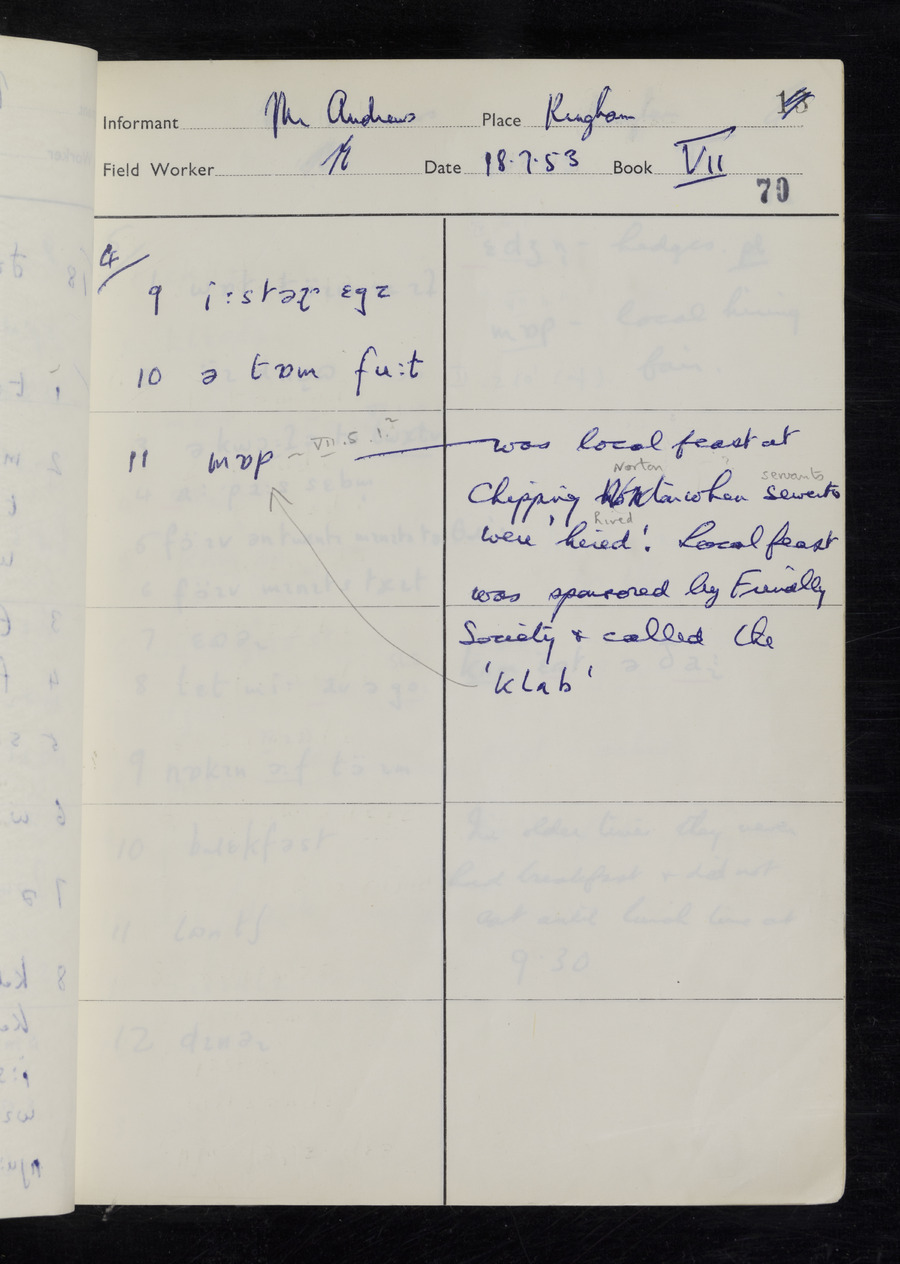 Informant Mr Andrews Place Kingham 18
Field Worker Date 18.7.53 Book VII
79
4/
9 i:stəɹ ɛgz
10 ə tɒm fu:t
11 mɒp - VII.5.1?
was local feast at
Norton servants
Chipping Norton when servants
hired
were 'hired'. Local feast
was sponsored by Friendly
Society & called the
'klab'